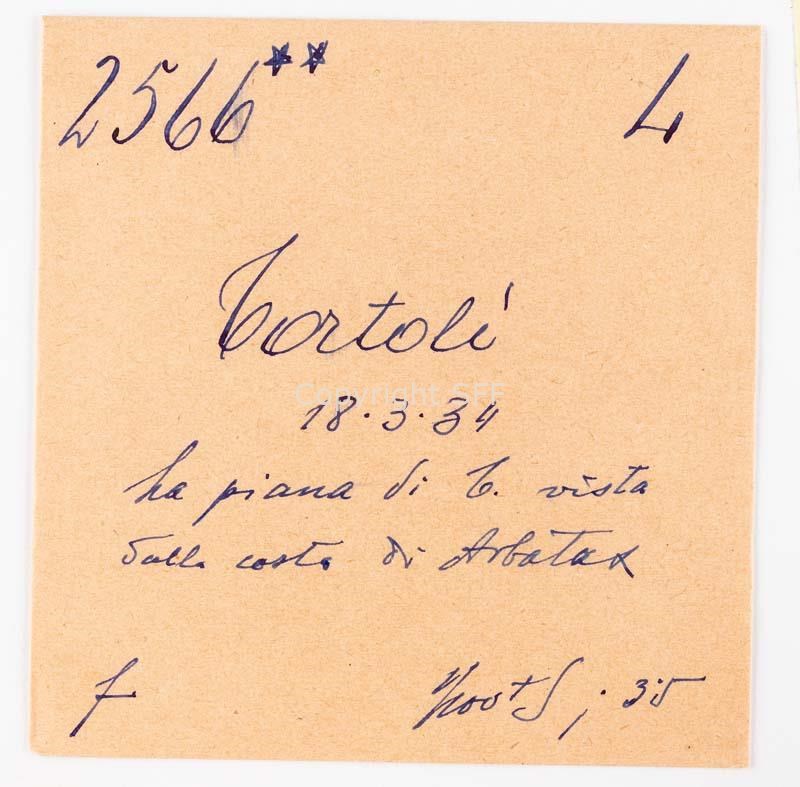 2566** L
Tortolì
Copyright SFF
18.3.34
La piana di T. vista
dalla costa di Arbatax
f
35